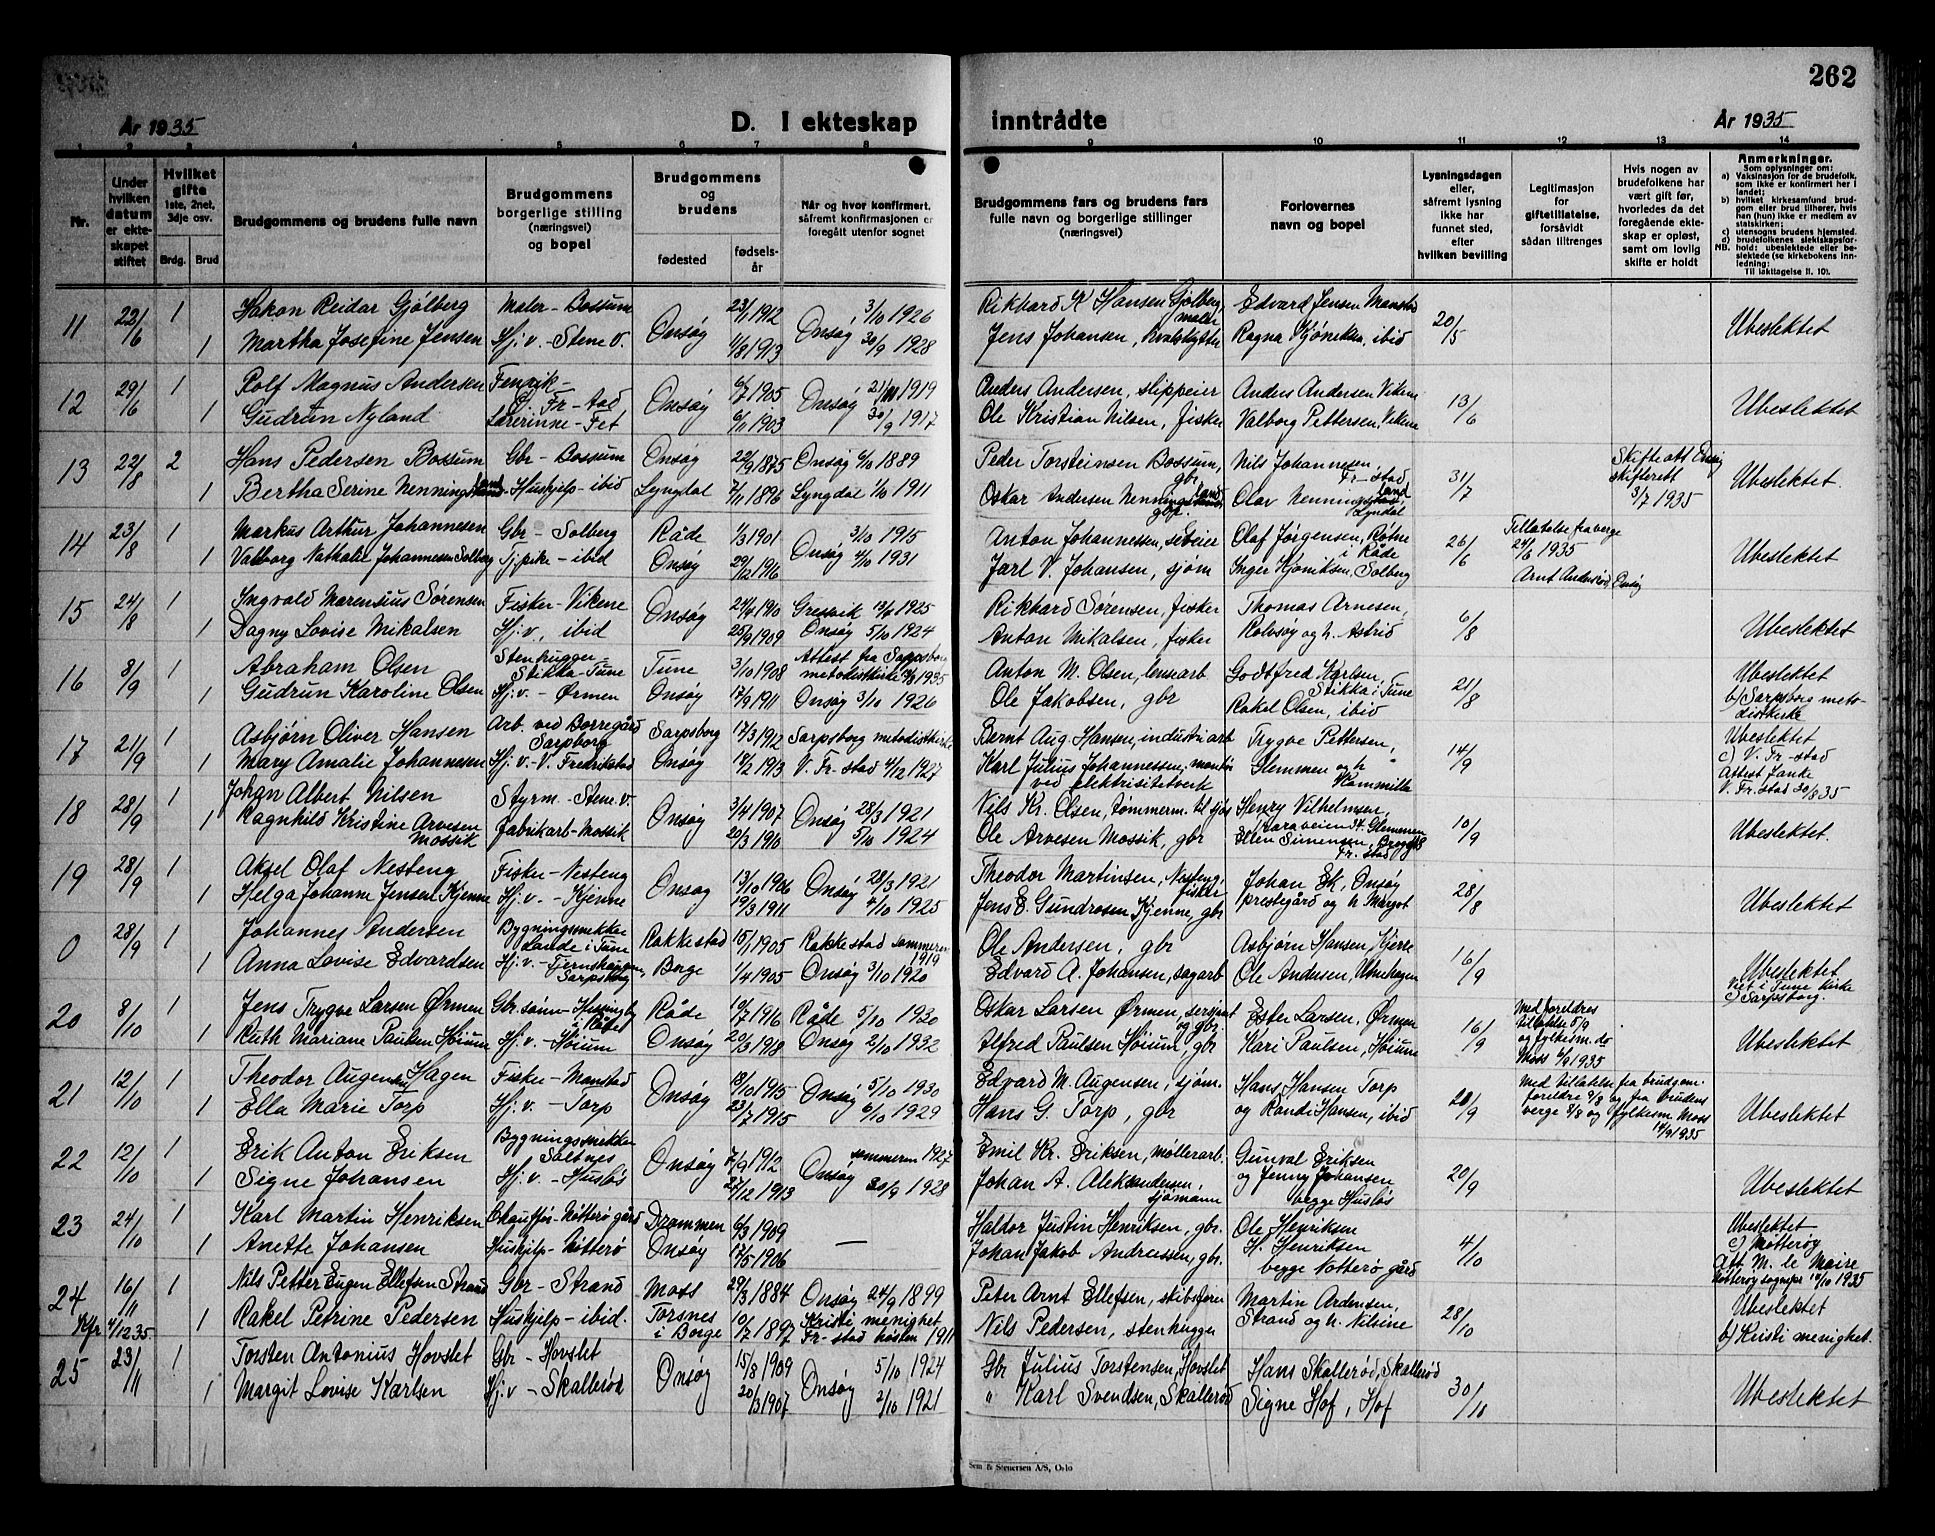 262
År 1935
D. I ekteskap inntrådte
År 1935
1 2 3 4 5 6 7 8 9 10 11 12 13 14
Nr.
Under hvilken datum er ekteskapet stiftet
Hvilket gifte 1ste, 2net, 3dje osv.
Brdg. Brud
Brudgommens og brudens fulle navn
Brudgommens borgerlige stilling (næringsvei) og bopel
Brudgommens og brudens
fødested
fødselsår
Når og hvor konfirmert, såfremt konfirmasjonen er foregått utenfor sognet
Brudgommens fars og brudens fars fulle navn og borgerlige stillinger (næringsvei)
Forlovernes navn og bopel
Lysningsdagen eller, såfremt lysning ikke har funnet sted, efter hvilken bevilling
Legitimasjon for giftetillatelse, forsåvidt sådan tiltrenges
Hvis nogen av brudefolkene har vært gift før, hvorledes da det foregående ekteskap er opløst, samt om lovlig skifte er holdt
Anmerkninger.
Som oplysninger om:
a) Vaksinasjon for de brudefolk, som ikke er konfirmert her i landet;
b) hvilket kirkesamfund brudgom eller brud tilhører, hvis han (hun) ikke er medlem av statskirken;
c) utensogns brudens hjemsted.
d) brudefolkenes slektskapsforhold: ubeslektede eller beslektede (se kirkebokens innledning:
NB.
Til iakttagelse II. 10).
11 22/6 1 Håkon Reidar Gjølberg Maler - Bossum Onsøy 23/1 1912 Onsøy 3/10 1926 Rikhard K Hansen Gjølberg, maler Edvard Jensen Manstad 20/5 Ubeslektet
1 Martha Josefine Jensen Hj.v. - Stene v. 1/8 1913 30/9 1928 Jens Johansen, hvalskytter Ragna Kjøniksen, ibid
12 29/6 1 Rolf Magnus Andersen Fenrik - Fr-stad Onsøy 6/7 1905 Onsøy 1919 Anders Andersen, slippeier Anders Andersen Vikene 13/6 Ubeslektet
1 Gudrun Nyland Lærerinne - Fet 6/11 1903 30/9 1917 Ole Kristian Nilsen, fisker Valborg Pettersen, Vikene
13 22/8 2 Hans Pedersen Bossum Gbr - Bossum Onsøy 22/9 1875 Onsøy 6/10 1889 Peder Torsteinsen Bossum, gbr Nils Johannesen, Fr-stad 31/7 Skifteatt Onsøy skifterett 3/7 1935 Ubeslektet.
1 Bertha Serine Nenningsland Huskjelp - ibid Lyngdal 7/11 1896 Lyngdal 1/10 1911 Oskar Andersen Nenningsland, gbr. Olav Nenningsland Lyndal
14 23/8 1 Markus Arthur Johannesen Gbr - Solberg Råde 1/3 1901 Onsøy 3/10 1915 Anton Johannessen, seleier Olaf Jørgensen, Røtne i Råde 26/6 Tillatelse fra verge 24/6 1935 Ubeslektet
1 Valborg Nathalie Johannesen Solberg Tjpike - ibid Onsøy 29/12 1916 4/10 1931 Jarl V. Johansen, sjøm Inger Kjøniksen, Solberg Arnt Anderstød, Onsøy
15 24/8 1 Ingvald Marensius Sørensen Fisker - Vikene Onsøy 24/4 1901 Gressvik 13/4 1925 Rikhard Sørensen, fisker Thomas Arnesen, 6/8 Ubeslektet
1 Dagny Lovise Mikalsen Hj.v., ibid 25/9 1909 Onsøy 5/10 1924 Anton Mikalsen, fisker Rolvsøy og h. Astrid
16 8/9 1 Abraham Olsen Stenhugger - Stikka - Tune Tune 3/10 1908 Attest fra Sarpsborg metodistkirke Anton M. Olsen, lensearb Godtfred Karlsen, Stikka i Tune 21/8 Ubeslektet
1 Gudrun Karoline Olsen Hj.v. - Ørmen Onsøy 17/9 1911 Onsøy 3/10 1926 Ole Jakobsen, gbr Rakel Olsen, ibid b) Sarpsborg metodistkirke
17 21/9 1 Asbjørn Oliver Hansen Arb. ved Borregård Sarpsborg Sarpsborg 17/3 1912 Sarpsborg metodistkirke Bernt Aug. Hansen, industriarb Trygve Pettersen, 14/9 Ubeslektet
1 Mary Amalie Johannesen Hj.v. - V. Fredrikstad Onsøy 14/2 1913 V. Fr-stad 4/12 1927 Karl Julius Johannessen, montør ved elektrisitetverk Glemmen og h " Kammilla c) V. Fr-stad Attest Lande V. Fr.stad 30/8 35
18 28/9 1 Johan Albert Nilsen Styrm. - Stene v. Onsøy 3/4 1907 Onsøy 28/3 1921 Nils Kr. Olsen, tømmerm. til sjøs Henry Vilhelmsen, St. Glemmen 10/9 Ubeslektet.
1 Ragnhild Kristine Arvesen Mossik Fabrikarb - Mossik 20/3 1910 5/10 1924 Ole Arvesen Mossik, gbr Ellen Simensen, Fr. stad
19 28/9 1 Aksel Olaf Nesteng Fisker - Nesteng Onsøy 13/10 1906 Onsøy 28/3 1921 Theodor Martinsen, Nesteng, fisker Johan Ek, Onsøy 28/8 Ubeslektet
1 Helga Johanne Jensen Kjenne Hj.v. - Kjenne 19/3 1911 4/10 1925 Jens E. Gundrosen Kjenne, gbr prestegård og h Margot
0 28/9 1 Johannes Andersen Bygningssnikker Lande i Tune Rakkestad 15/1 1905 Rakkestad sommeren 1919 Ole Andersen, gbr Asbjørn Hansen, Kjerre 16/9 Ubeslektet
1 Anna Lovise Edvardsen Hj.v. - Sarpsborg Borge 1/4 1905 Onsøy 3/10 1920 Edvard A. Johansen, sagarb Ole Andersen, Utnehagen Viet i Tune kirke c) Sarpsborg.
20 8/10 1 Jens Trygve Larsen Ørmen Gbr.sønn - Husingby i Råde Råde 14/7 1916 Råde 5/10 1930 Oskar Larsen Ørmen, sersjant og gbr. Ester Larsen, Ørmen 16/9 Med foreldres tillatelse 5/9 og fylkesm. do Moss 6/9 1935 Ubeslektet
1 Ruth Mariane Paulsen Høium Hj.v. - Høium Onsøy 20/3 1918 Onsøy 2/10 1932 Alfred Paulsen Høium, gbr Kari Paulsen, Høium
21 12/10 1 Theodor Augensen Hagen Fisker - Manstad Onsøy 18/10 1915 Onsøy 5/10 1930 Edvard M. Augensen, sjøm. Hans Hansen Torp 20/9 Med tillatelse fra brudgom. foreldre 9/8 og fra brudens verge 8/8 og fylkesm. Moss 14/9 1935 Ubeslektet
1 Ella Marie Torp Hj.v. - Torp 23/7 1915 6/10 1929 Hans G. Torp, gbr og Randi Hansen, ibid
22 12/10 1 Erik Anton Eriksen Bygningssnikker Saltnes Onsøy 7/9 1912 Onsøy sommeren 1927 Emil Kr. Eriksen, møllerarb. Gunval Eriksen 20/9 Ubeslektet
1 Signe Johansen Hj.v. - Husløs 22/12 1913 30/9 1928 Johan A. Aleksandersen, sjømann og Jenny Johansen begge Husløs
23 24/10 1 Karl Martin Henriksen Chauffør - Nøtterø gård Drammen 6/3 1909 — Haldor Justin Henriksen, gbr. Ole Henriksen 4/10 Ubeslektet
1 Anette Johansen Huskjelp - Nøtterø Onsøy 17/5 1906 Johan Jakob Andreassen, gbr. H. Henriksen begge Nøtterø gård c) Nøtterøy Att M. le Maire Nøtterøy sognepr 10/10 1935
24 16/11 1 Nils Petter Eugen Ellefsen Strand Gbr - Strand Moss 29/3 1884 Onsøy 24/9 1899 Peter Arnt Ellefsen, skibsfører Martin Andersen, 28/10 Ubeslektet
Kfr 4/12 35 1 Rakel Petrine Pedersen Huskjelp - ibid. Torsnes i Borge 10/7 1897 Kristi menighet Fr-stad høsten 1911 Nils Pedersen, stenhugger Strand og h. Nilsine b) Kristi menighet.
25 23/11 1 Torsten Antonius Hovslet Gbr - Hovslet Onsøy 15/8 1909 Onsøy 5/10 1924 Gbr Julius Torstensen, Hovslet Hans Skallerød, Skallerød 30/10 Ubeslektet
1 Margit Lovise Karlsen Hj.v - Skallerød 20/3 1907 Onsøy 2/10 1921 " Karl Svendsen, Skallerød Signe Hof, Hof
Sem & Stenersen A/S, Oslo